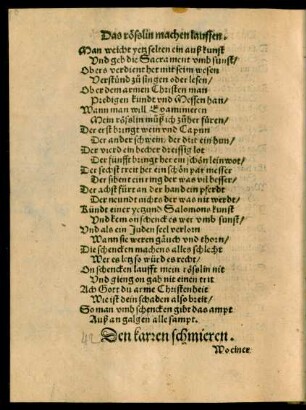 Das rösslin machen lauffen.
Man weicht yetz selten ein auß kunst
Und geb die Sacrament umb sunst/
Obers verdient het mit seim wesen
Verstünd zů singen oder lesen/
Ober dem armen Christen man
Predigen kundt und Messen han/
Wann man will Examinieren
Mein rösslin můß ich zůher füren/
Der erst bringt wein und Capun
Der ander schwein/ der drit ein hun/
Der vierd ein becher dreissig lot
Der fünfft bringt her ein schön leinwot/
Der sechst treit her ein schön par messer
Der sibent ein ring der was vil besser/
Der achst fürt an der hand ein pferdt
Der neundt nichts der was nit werdt/
Kündt einer yezund Salomons kunst
Und kem on schencken es wer umb sunst/
Und als ein Juden seel verlorn
Wann sie weren gäuch und thorn/
Die schencken machens alles schlecht
Wer es letz so würd es recht/
On schencken laufft mein rösslin nit
Und gieng on gab nit einen trit
Ach Gott du arme Christenheit
Wie ist dein schaden also breit/
So man umb schencken gibt das ampt
Auß an galgen alle sampt.
42
Den karren schmieren.
Wo einer